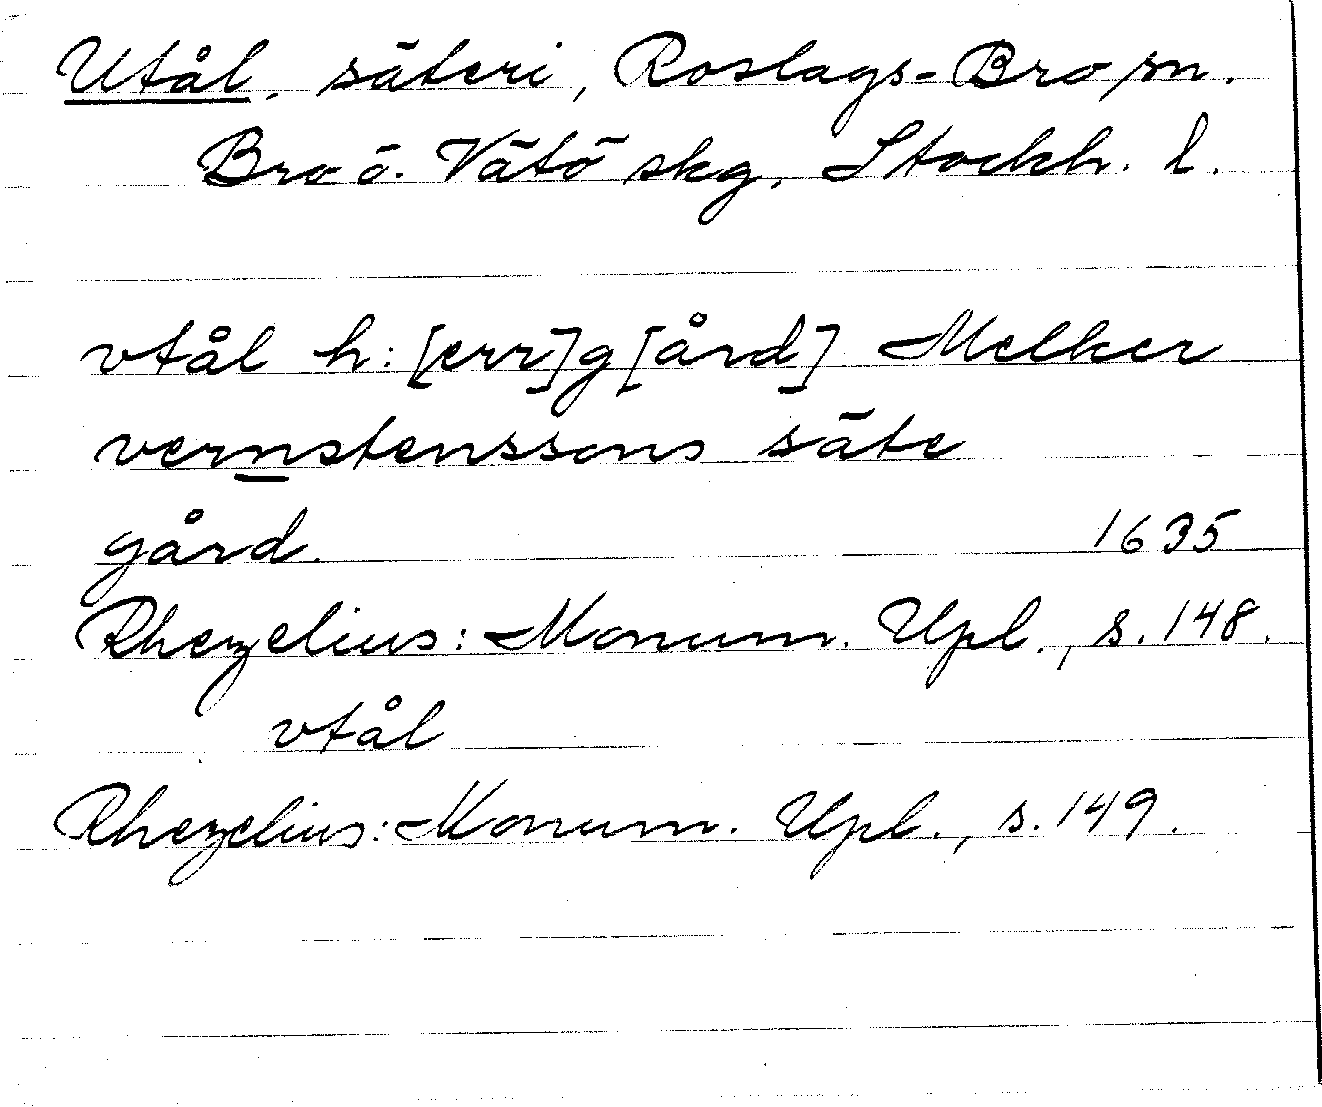 Utål, säteri, Roslags-Bro sn.
Bro o. Vätö skg, Stockh. l.
vtål h:[err]g[ård] Melker
vernstenssons säte
gård. 1635
Rhezelius: Monum. Upl., s. 148.
vtål
Rhezelius: Monum. Upl., s. 149.